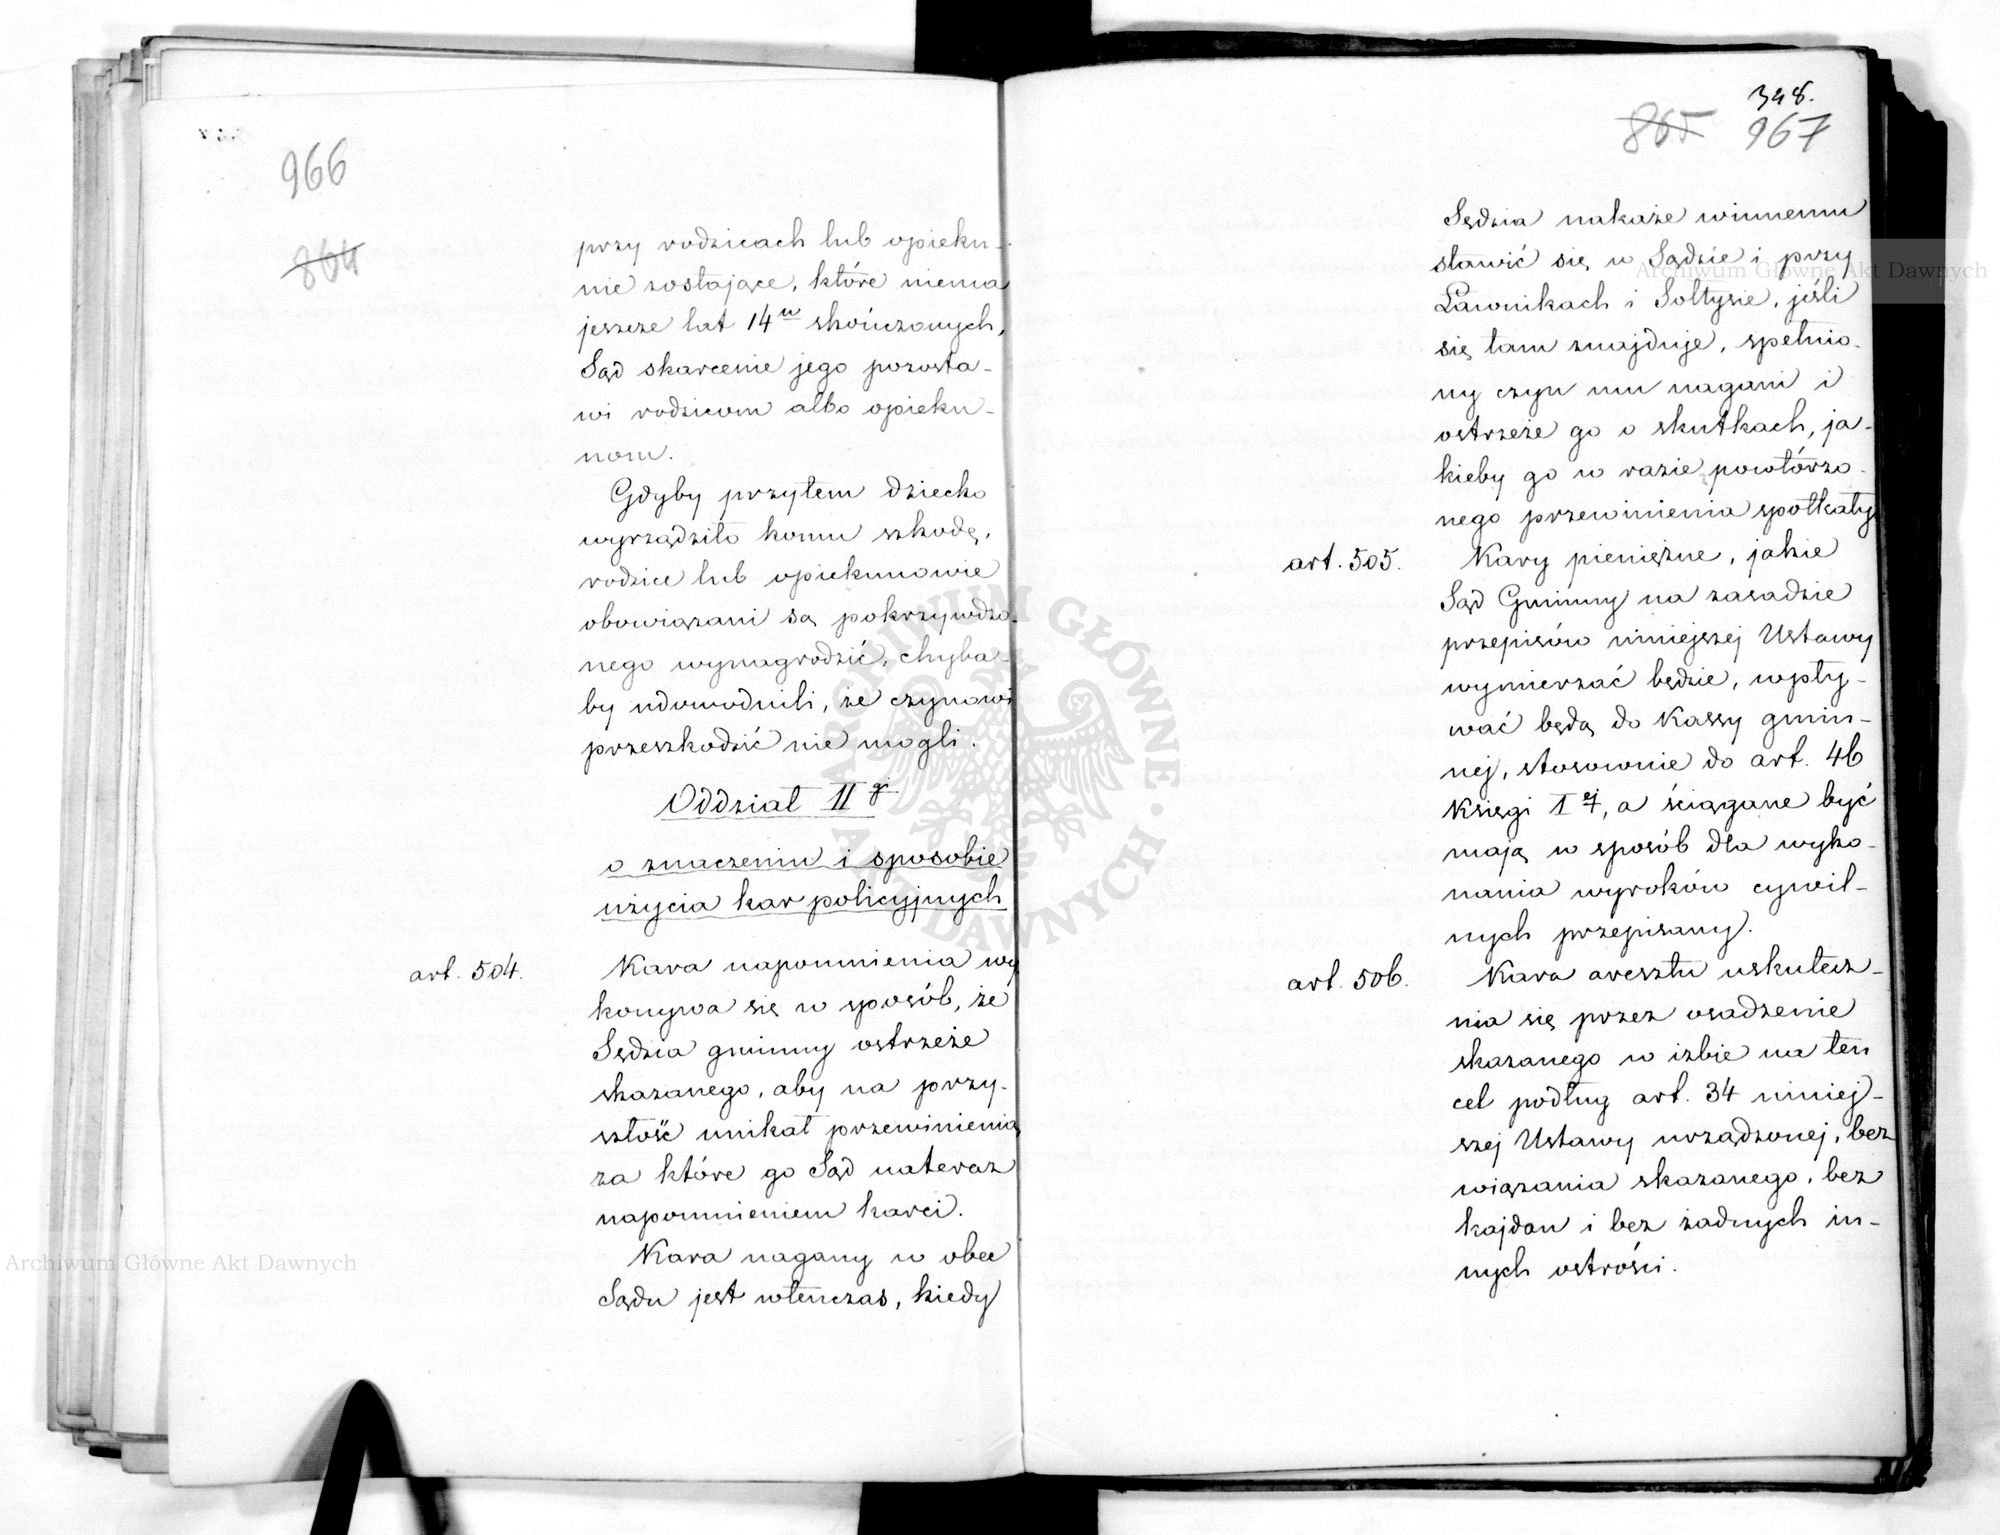 966
864
przy rodzicach lub opieku-
nie zostające, które niema
jeszcze lat 14u skończonych,
Sąd skarcenie jego pozosta-
wi rodzicom albo opieku-
nom.
Gdyby przytem dziecko
wyrządziło komu szkodę,
rodzice lub opiekunowie
obowiązani są pokrzywdzo-
nego wynagrodzić, chyba-
by udowodnili, że czynowi
przeszkodzić nie mogli.
Oddział II g
o znaczeniu i sposobie
użycia kar policyjnych
art. 504.
Kara napomnienia wy
konywa się w sposób, że
Sędzia gminny ostrzeże
skazanego, aby na przy-
szłość unikał przewinienia
za które go Sąd nateraz
napomnieniem karci.
Kara nagany w obec
Sądu jest wtenczas, kiedy
348.
865 967
Sędzia nakaże winnemu
stawić się w Sądzie i przy
Ławnikach i Sołtysie, jeśli
się tam znajduje, spełnio-
ny czyn mu nagani i
ostrzeże go o skutkach, ja-
kieby go w razie powtórzo-
nego przewinienia spotkały
art. 505.
Kary pieniężne, jakie
Sąd Gminny na zasadzie
przepisów niniejszej Ustawy
wymierzać będzie, wpły-
wać będą do Kassy gmin-
nej, stosownie do art. 46
Księgi I ej, a ściągane być
mają w sposób dla wyko-
nania wyroków cywil-
nych przepisany.
art. 506.
Kara aresztu uskutecz-
nia się przez osadzenie
skazanego w izbie na ten
cel podług art. 34 niniej-
szej Ustawy urządzonej, bez
wiązania skazanego, bez
kajdan i bez żadnych in-
nych ostrości.
ARCHIWUM GŁÓWNE AKT DAWNYCH
Archiwum Główne Akt Dawnych
Archiwum Główne Akt Dawnych